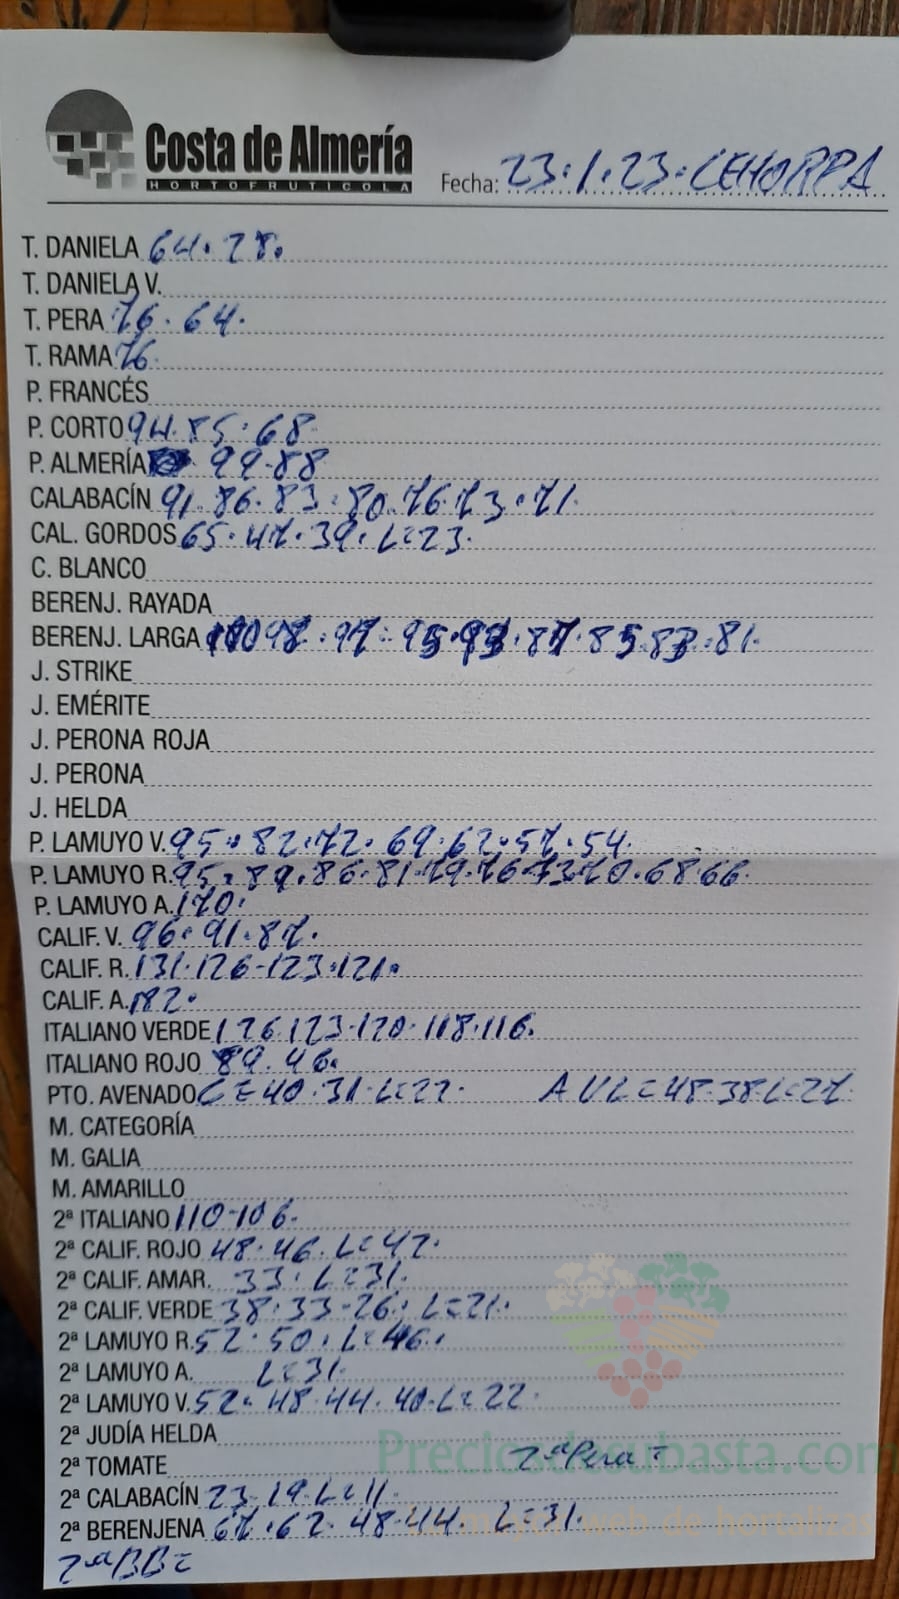 Costa de Almería
HORTOFRUTICOLA
Fecha: 23.1.23. CEHORPA
T. DANIELA 64. 28.
T. DANIELA V.
T. PERA 76. 64.
T. RAMA 76
P. FRANCÉS
P. CORTO 94. 85. 68
P. ALMERÍA 99-88
CALABACÍN 91. 86. 83. 80. 76. 73. 71.
CAL. GORDOS 65. 47. 39. L=23.
C. BLANCO
BERENJ. RAYADA
BERENJ. LARGA 98. 97. 95. 93. 87. 85. 83. 81.
J. STRIKE
J. EMÉRITE
J. PERONA ROJA
J. PERONA
J. HELDA
P. LAMUYO V. 95. 82. 72. 69. 62. 57. 54.
P. LAMUYO R. 95. 89. 86. 81. 79. 76. 73. 70. 68. 66.
P. LAMUYO A. 170.
CALIF. V. 96. 91. 87.
CALIF. R. 131. 126-123. 121.
CALIF. A. 182.
ITALIANO VERDE 126. 123. 120. 118. 116.
ITALIANO ROJO 89. 46.
PTO. AVENADO C=40. 31. L=22. AVL=48. 38 L=27
M. CATEGORÍA
M. GALIA
M. AMARILLO
2ª ITALIANO 110-106.
2ª CALIF. ROJO 48. 46. L=42.
2ª CALIF. AMAR. 33. L=31.
2ª CALIF. VERDE 38. 33-26. L=21.
2ª LAMUYO R. 52. 50. L=46.
2ª LAMUYO A. L=31.
2ª LAMUYO V. 52. 48. 44. 40. L=22.
2ª JUDÍA HELDA
2ª TOMATE 2ª Pera =
Preciosdesubasta.com
2ª CALABACÍN 23. 19. L=11.
2ª BERENJENA 67. 62. 48-44. L=31.
web de hortalizas
2ª BB=